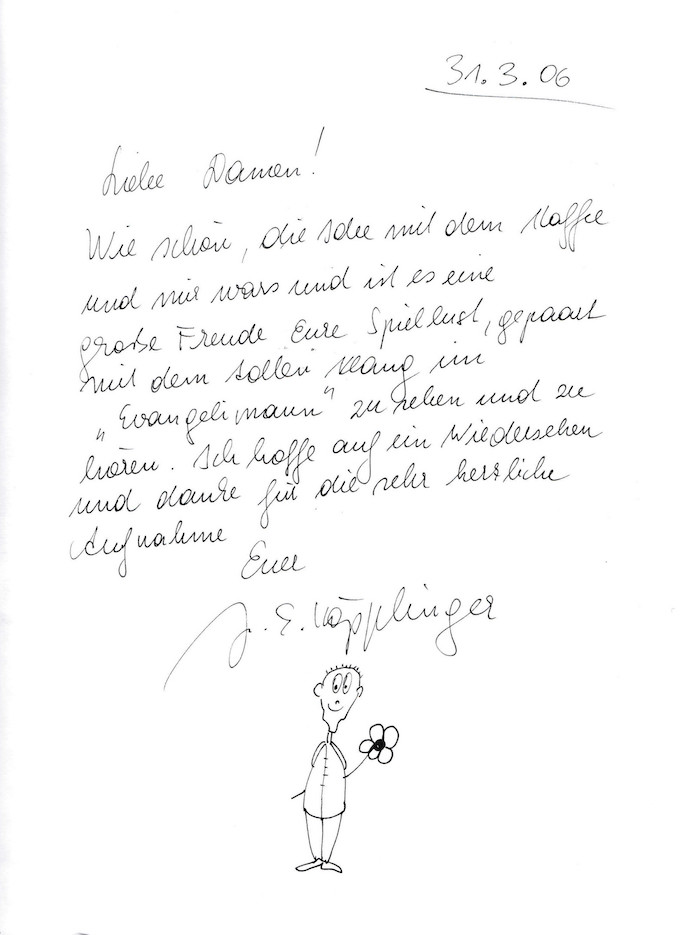 31.3.06
Liebe Damen!
Wie schön, die Idee mit dem Kaffee
und mir wars und ist es eine
große Freude Eure Spiellust, gepaart
mit dem tollen Klang im
„Evangelimann" zu sehen und zu
hören. Ich hoffe auf ein Wiedersehen
und danke für die sehr herzliche
Aufnahme
Euer
J. E. Köpplinger